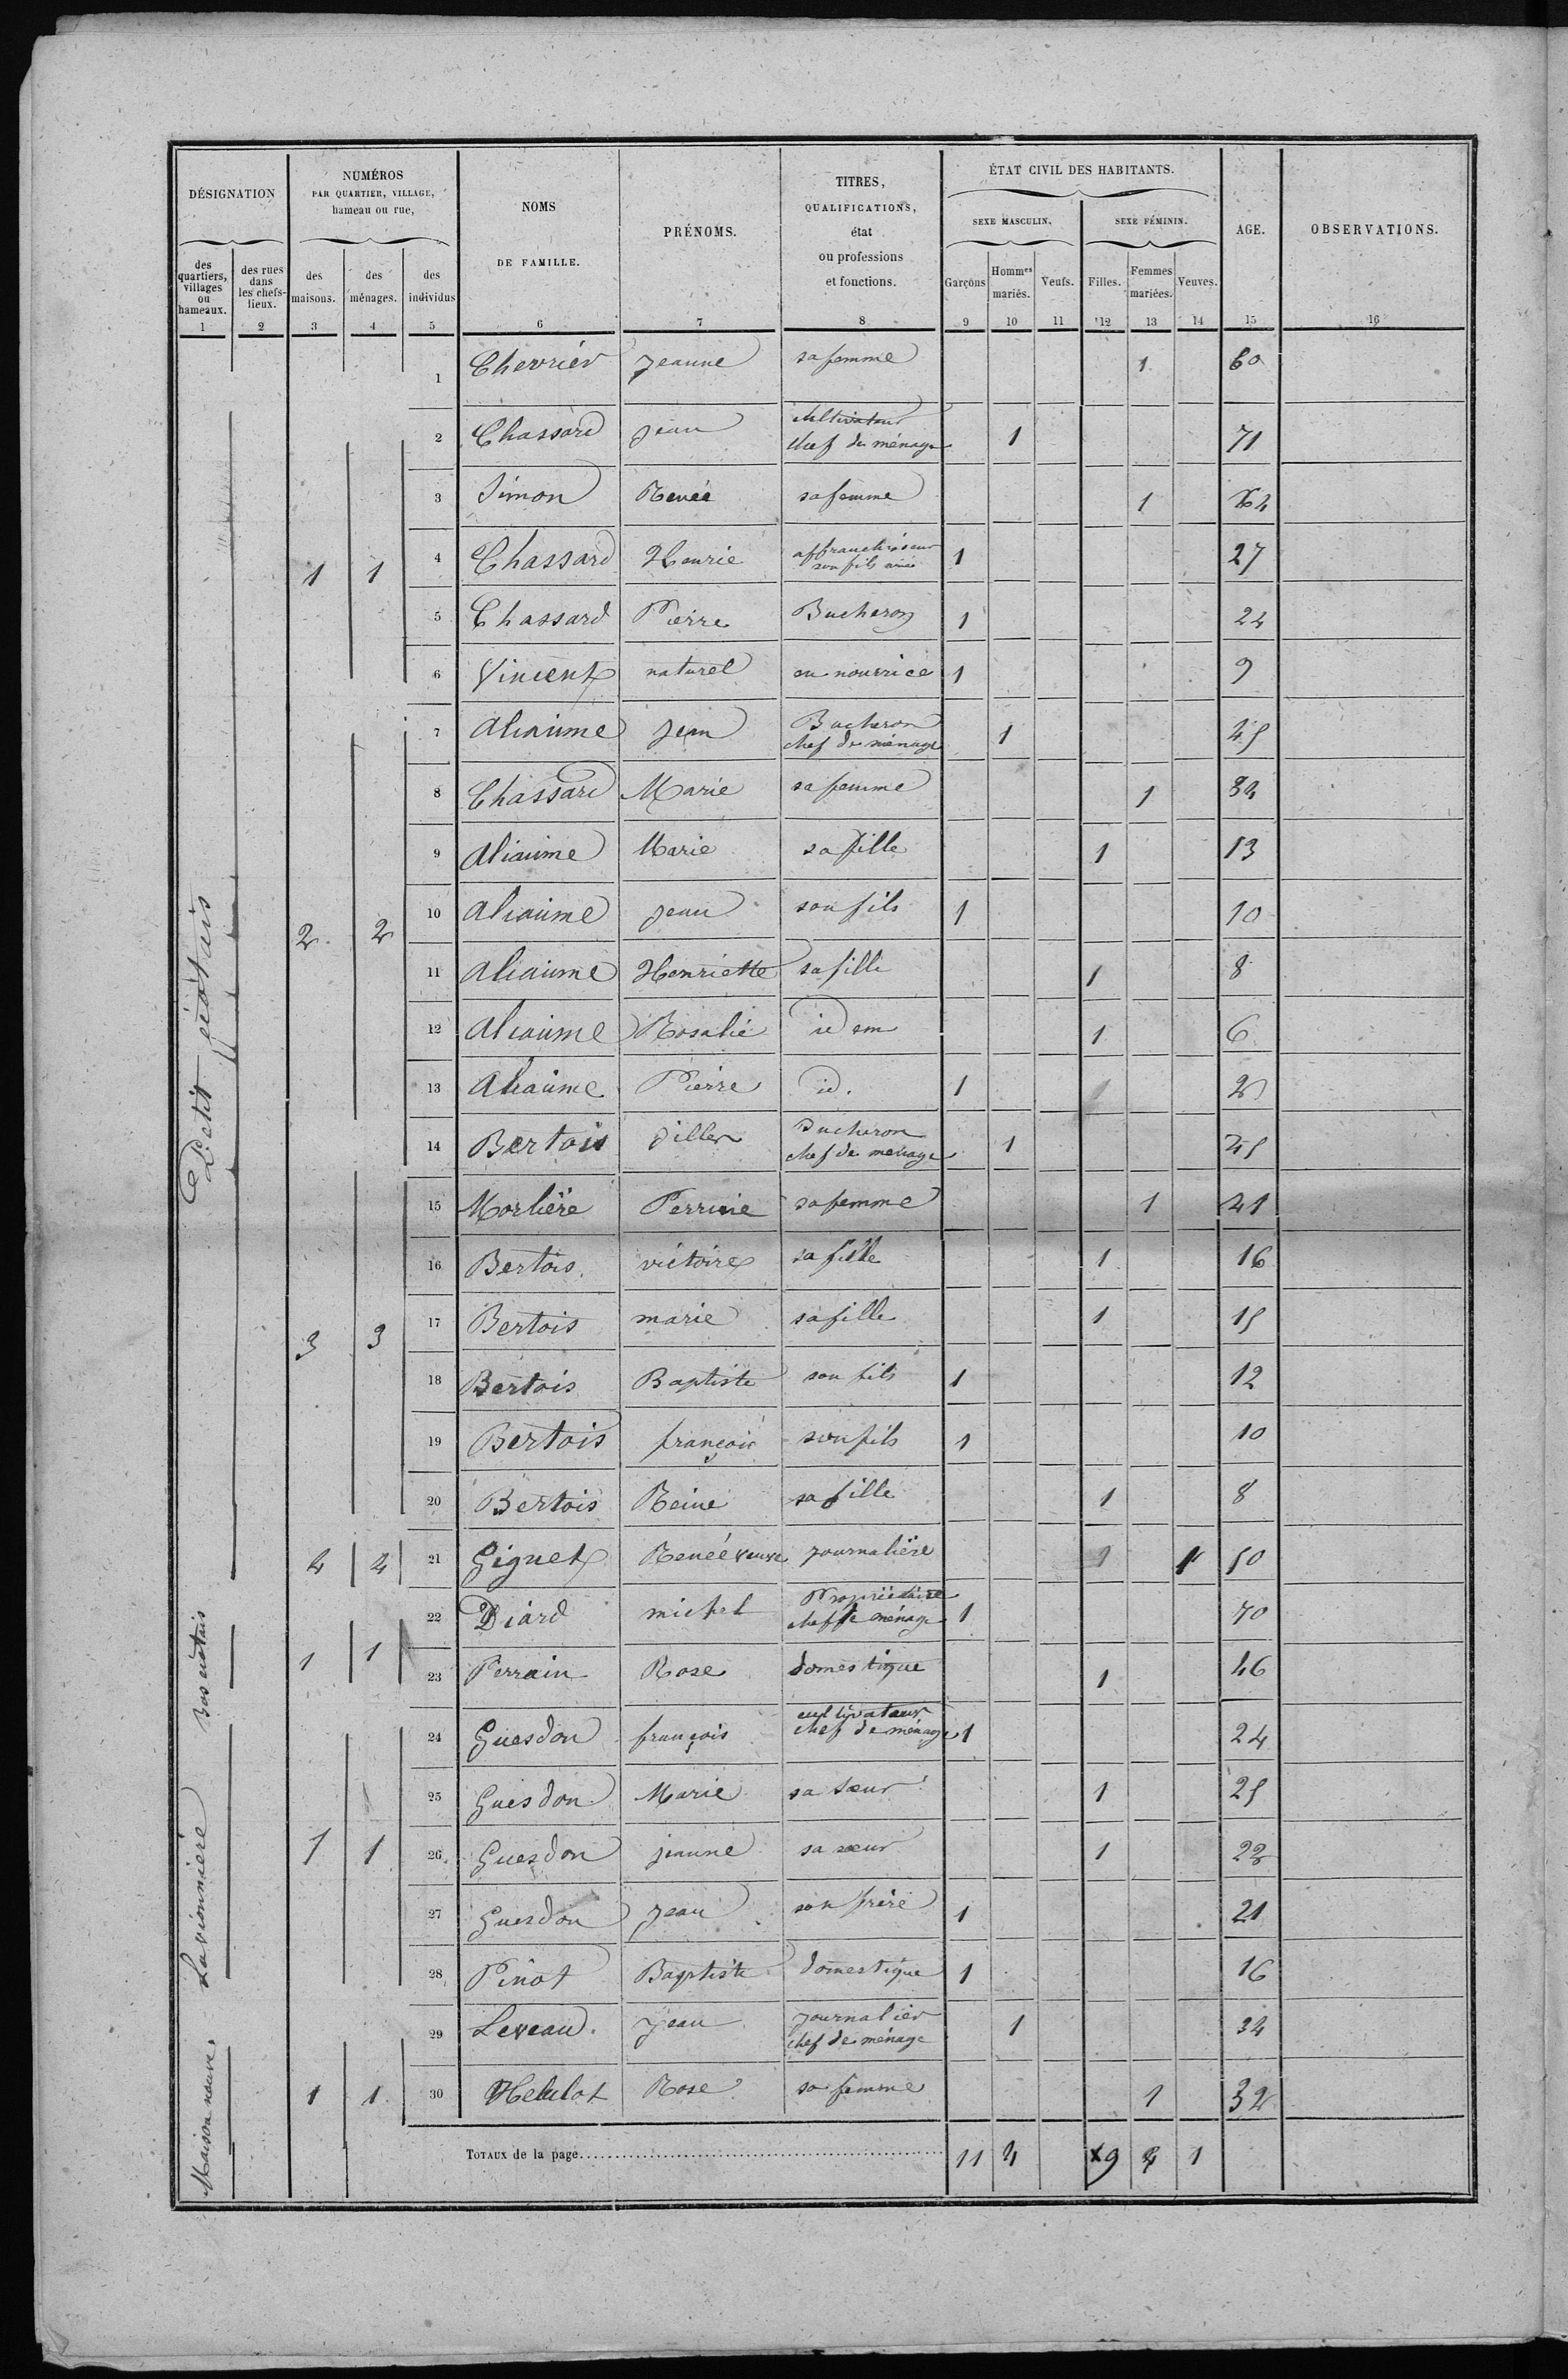 DÉSIGNATION
NUMÉROS
PAR QUARTIER, VILLAGE,
hameau ou rue,
NOMS
DE FAMILLE.
PRÉNOMS.
TITRES,
QUALIFICATIONS,
état
ou professions
et fonctions.
ÉTAT CIVIL DES HABITANTS.
SEXE MASCULIN.
SEXE FÉMININ.
AGE.
OBSERVATIONS.
des quartiers, villages ou hameaux.
des rues dans les chefs-lieux.
des maisons.
des ménages.
des individus
Garçons
Hommes mariés.
Veufs.
Filles.
Femmes mariées.
Veuves.
1 2 3 4 5 6 7 8 9 10 11 12 13 14 15 16
1 Chevrier Jeanne sa femme 1 60
2 Chassard Jean Cultivateur chef de ménage 1 71
3 Simon Renée sa femme 1 64
1 1 4 Chassard Henrie affranchisseur son fils ainé 1 27
5 Chassard Pierre Bucheron 1 24
6 Vincent naturel en nourrice 1 9
7 Aliaume Jean Bucheron chef de ménage 1 45
8 Chassard Marie sa femme 1
9 Aliaume Marie sa fille 1 13
Petit
2 2 10 Aliaume Jean son fils 1 10
11 Aliaume Henriette sa fille 1 8
12 Aliaume Rosalie idem 1 6
13 Aliaume Pierre id. 1 1
14 Bertois Bucheron chef de ménage 1 45
15 Morlière Perrine sa femme 1 41
16 Bertois victoire sa fille 1 16
3 3 17 Bertois marie sa fille 1 15
18 Bertois Baptiste son fils 1 12
19 Bertois françois son fils 1 10
20 Bertois Reine sa fille 1 8
4 4 21 Giguet Renée veuve journalière 1 1 50
Bas
1 1 22 Diard michel Propriétaire chef de ménage 1 70
23 Perrain Rose domestique 1 46
24 Guesdon françois cultivateur chef de ménage 1 24
25 Guesdon Marie sa sœur 1 25
1 1 26 Guesdon jeanne sa sœur 1 22
27 Guesdon Jean son frère 1 21
28 Pinot Baptiste domestique 1 16
Maison neuve
29 Leveau Jean journalier chef de ménage 1 34
1 1 30 Rose sa femme 1 32
TOTAUX de la page 11 4 9 4 1